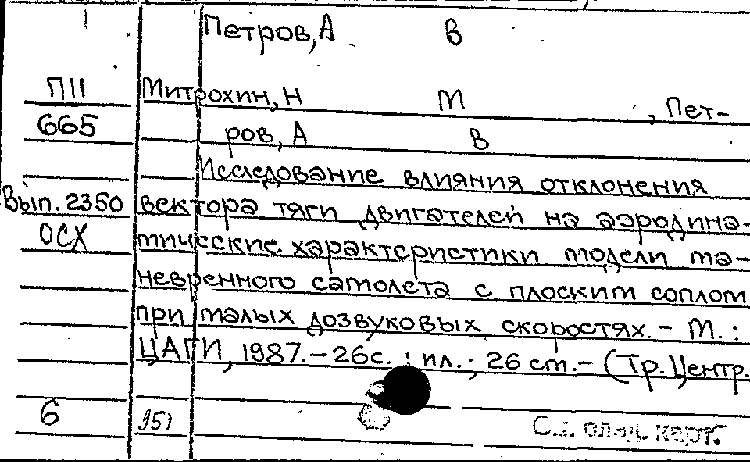 Петров, А В
П11 Митрохин, Н М , Пет-
665 ров, А В
Исследование влияния отклонения
Вып. 2350 вектора тяги двигателей на аэродина-
ОСХ мические характеристики модели ма-
невренного самолета с плоским соплом
при малых дозвуковых скоростях. - М.:
ЦАГИ, 1987. - 26с. : ил.; 26 см. - (Тр. Центр.
6 карт.